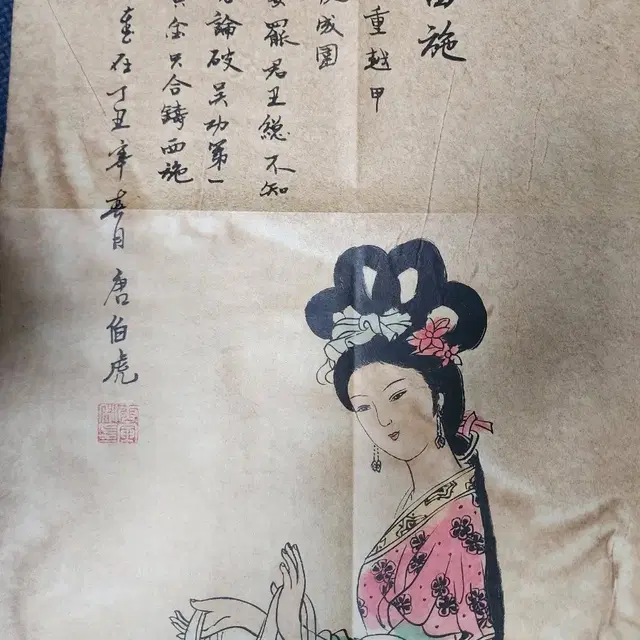 施
重越甲
成圍
罷君王總不知
論破吳功第一
金只合鑄西施
在丁丑年春月唐伯虎